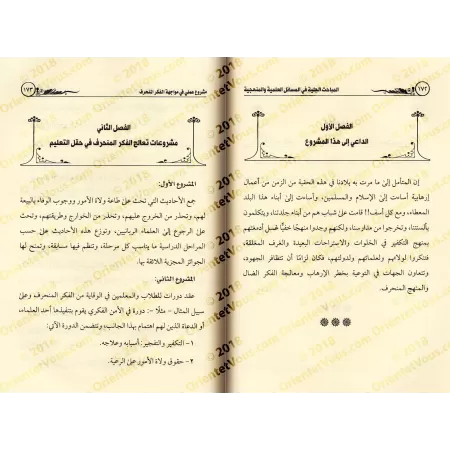 ١٧٢
المباحث الجلية في المسائل العلمية والمنهجية
الفصل الأول
الداعي إلى هذا المشروع
إن المتأمل إلى ما مرت به بلادنا في هذه الحقبة من الزمن من أعمال
إرهابية أساءت إلى الإسلام وقامت على سلامته، وأساءت إلى أبناء هذا البلد
المعطاء، ومع كل أسف!! قامت على شباب هم من أبناء جلدتنا، ويتكلمون
بألسنتنا، وتخرجوا من مدارسنا، ولكنهم وجدوا منهجًا خفيًّا غسل أدمغتهم
بمنهج التكفير في الخلوات والاستراحات البعيدة والغرف المغلقة،
فتنكروا لولاتهم ولعلمائهم ولدولتهم، فكان لزامًا أن تتظافر الجهود،
وتتعاون الجهات في التوعية بخطر الإرهاب ومعالجة الفكر الضال
والمنهج المنحرف.
مشروع عملي في مواجهة الفكر المنحرف
١٧٣
الفصل الثاني
مشروعات تعالج الفكر المنحرف في حقل التعليم
المشروع الأول:
جمع الأحاديث التي تحث على طاعة ولاة الأمور ووجوب الوفاء بالبيعة
لهم، وتحذر من الخروج عليهم، وتحذر من الخوارج وطريقتهم، وتحث
على الرجوع إلى العلماء الربانيين، وتوزع هذه الأحاديث على حسب
المراحل الدراسية ما يناسب كل مرحلة، وتنظم فيها مسابقة، وتمنح لها
الجوائز المجزية اللائقة بها.
المشروع الثاني:
عقد دورات للطلاب والمعلمين في الوقاية من الفكر المنحرف وعلى
سبيل المثال -مثلًا-: دورة في الأمن الفكري يقوم بتنفيذها أحد العلماء،
أو الدعاة الذين لهم اهتمام بهذا الجانب؛ وتتضمن الدورة الآتي:
١- التكفير والتفجير: أسبابه وعلاجه.
٢- حقوق ولاة الأمور على الرعية.
© 2018
OrientetVous.com